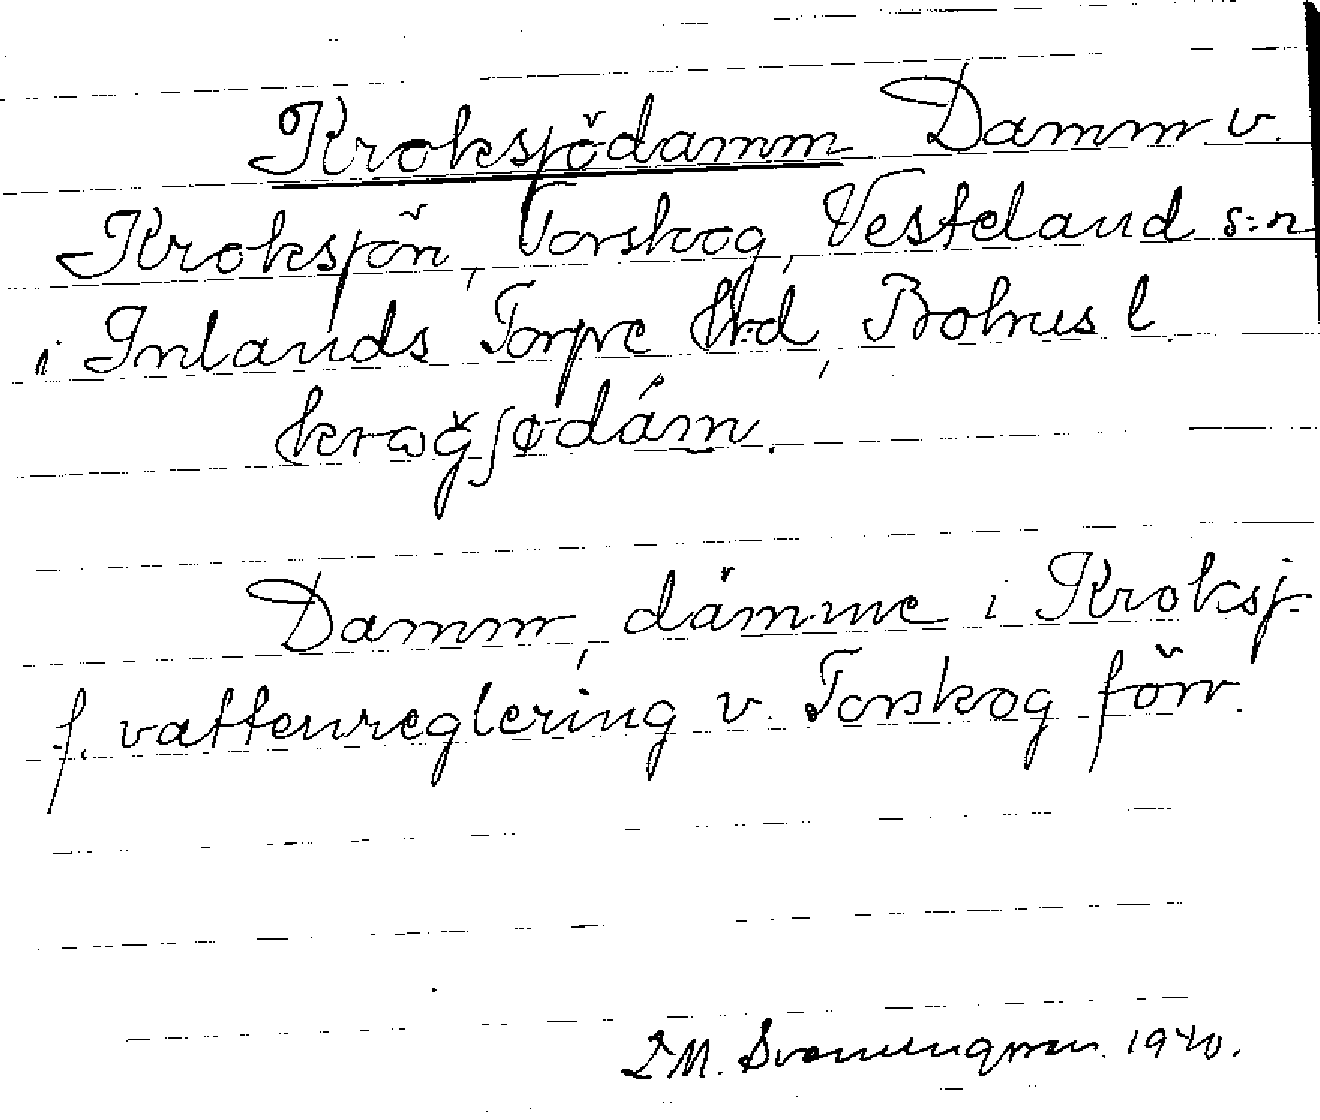 Kroksjödamm Damm v.
Kroksjön, Torskog, Vesterland s:n
i Inlands Torpe hd, Bohus l.
Damm, dämme i Kroksj.
f. vattenreglering v. Torskog förr.
1940.